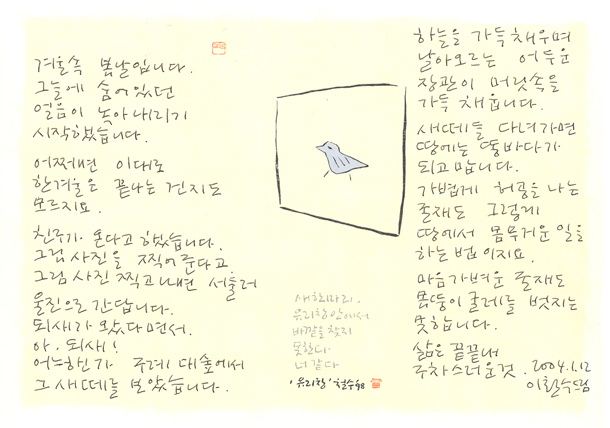 겨울속 봄날입니다.
그늘에 숨어있던
얼음이 녹아내리기
시작했습니다.
어쩌면 이대로
한겨울은 끝나는 건지도
모르지요.
친구가 온다고 했습니다.
그림 사진을 찍어준다고
그림 사진 찍고나면 서둘러
울진으로 간답니다.
되새가 왔다면서.
아, 되새!
어느핸가 구례 대숲에서
그 새떼를 보았습니다.
새 한마리.
유리창 안에서
바깥을 찾지
못한다
너 같다
'유리창' 철수 98
하늘을 가득 채우며
날아오르는 어두운
장관이 머릿속을
가득 채웁니다.
새떼들 다녀가면
땅에는 똥바다가
되고 맙니다.
가볍게 허공을 나는
존재도 그렇게
땅에서 몸무거운 일을
하는 법이지요.
마음가벼운 존재도
몸뚱이 굴레를 벗지는
못합니다.
삶은 끝끝내
주차스러운것. 2004.1.12
이철수드림